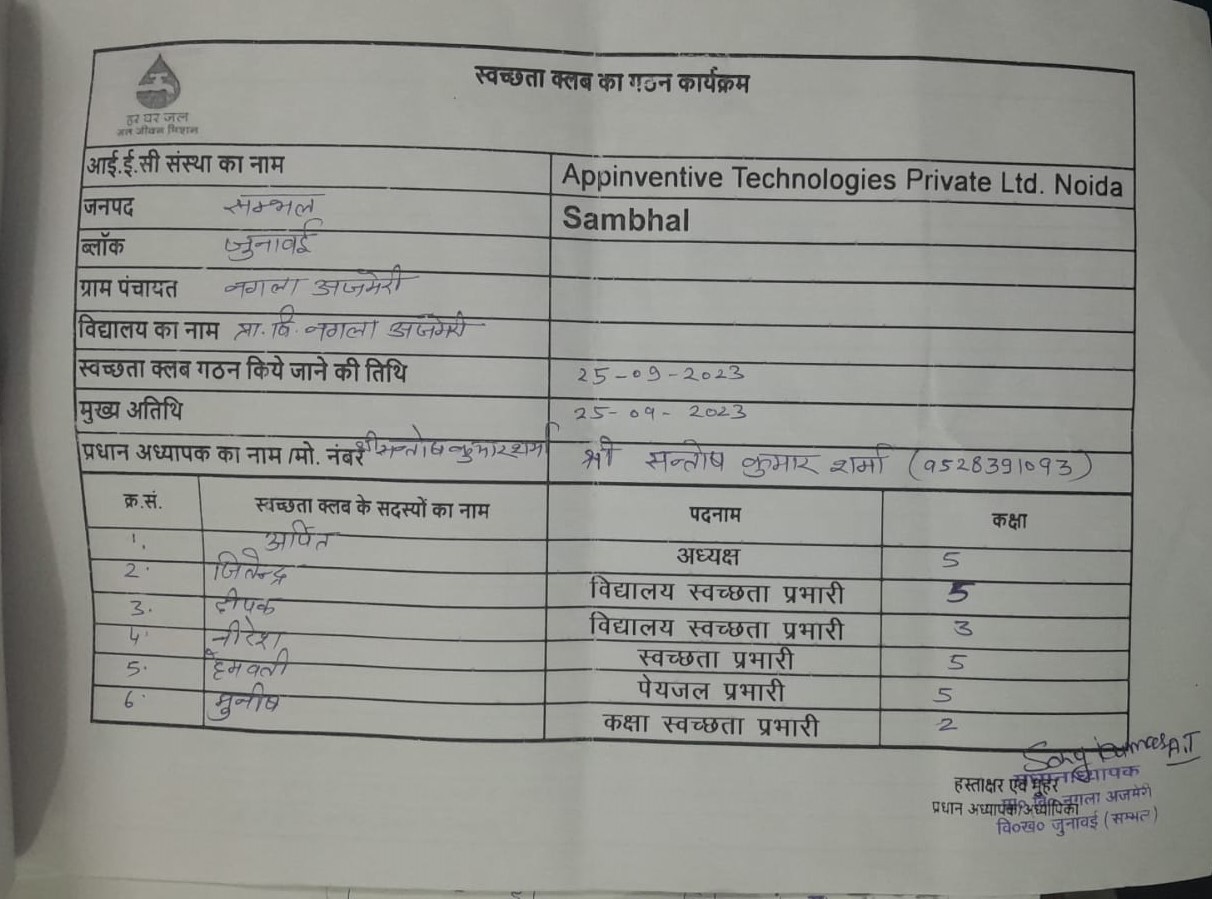 स्वच्छता क्लब का गठन कार्यक्रम
हर घर जल
जल जीवन मिशन
आई.ई.सी संस्था का नाम Appinventive Technologies Private Ltd. Noida
जनपद सम्भल Sambhal
ब्लॉक जुनावई
ग्राम पंचायत नगला अजमेरी
विद्यालय का नाम प्रा. वि. नगला अजमेरी
स्वच्छता क्लब गठन किये जाने की तिथि 25-09-2023
मुख्य अतिथि 25-09-2023
प्रधान अध्यापक का नाम /मो. नंबर श्री सन्तोष कुमार शर्मा श्री सन्तोष कुमार शर्मा (9528391093)
क्र.सं. स्वच्छता क्लब के सदस्यों का नाम पदनाम कक्षा
1. अर्पित अध्यक्ष 5
2. जितेन्द्र विद्यालय स्वच्छता प्रभारी 5
3. दीपक विद्यालय स्वच्छता प्रभारी 3
4. नीरेश स्वच्छता प्रभारी 5
5. हेमवती पेयजल प्रभारी 5
6. मुनीष कक्षा स्वच्छता प्रभारी 2
A.T
हस्ताक्षर एवं मुहर
प्रधान अध्यापक/अध्यापिका
नगला अजमेरी
वि०ख० जुनावई (सम्भल)